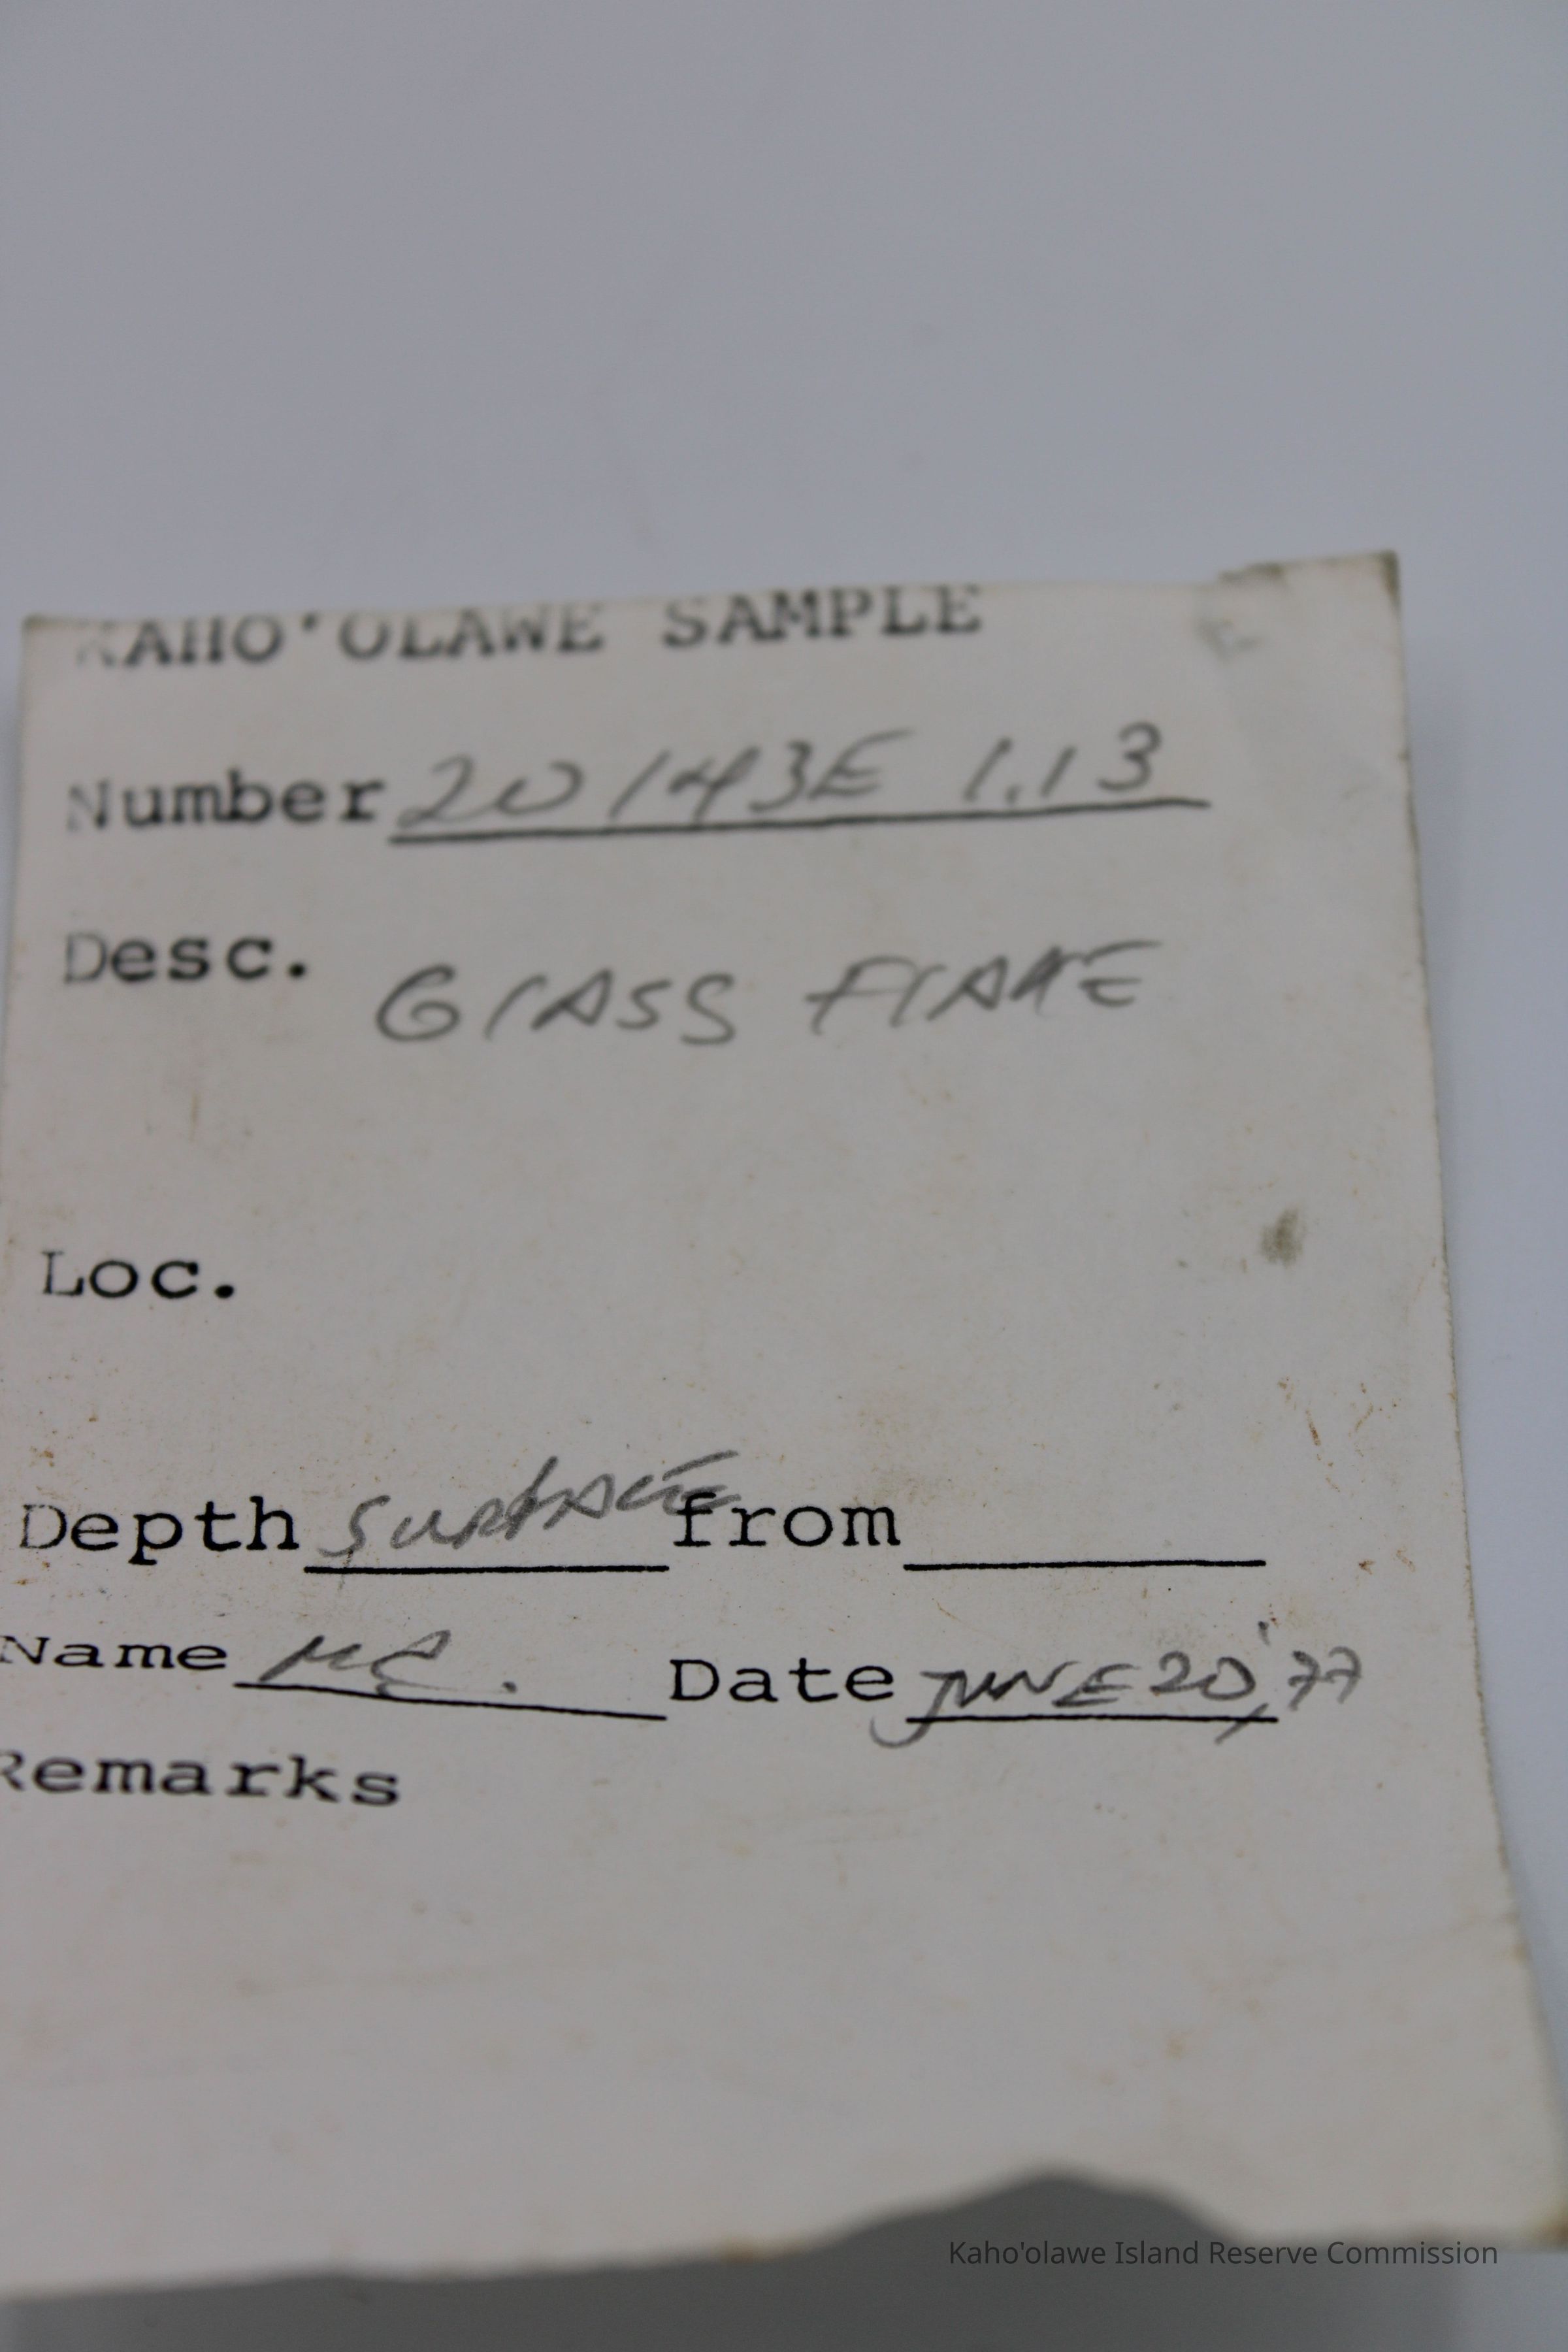 KAHO'OLAWE SAMPLE
Number 20 143E 1.13
Desc. GLASS FLAKE
Loc.
Depth SURFACE from
Name MC. Date JUNE 20, '77
Remarks
Kaho'olawe Island Reserve Commission